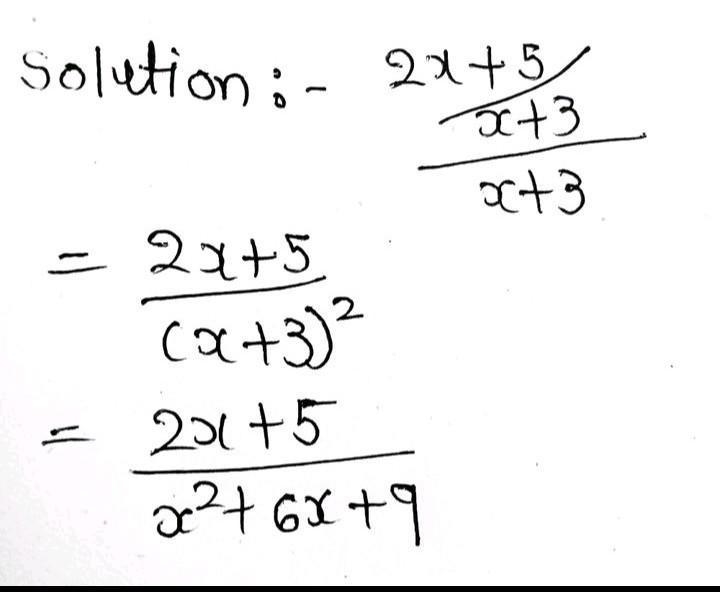 Solution :- 2x+5/
x+3
x+3
= 2x+5
(x+3)²
= 2x+5
x²+6x+9